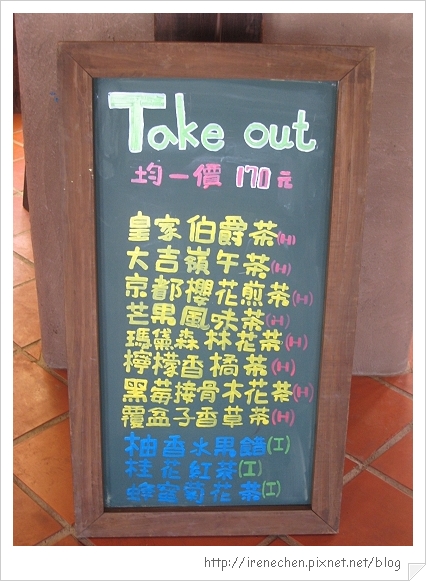 Take out
均一價 170元
皇家伯爵茶(H)
大吉嶺午茶(H)
京都櫻花煎茶(H)
芒果風味茶(H)
瑪黛森林花茶(H)
檸檬香橘茶(H)
黑莓接骨木花茶(H)
覆盆子香草茶(H)
柚香水果醋(I)
桂花紅茶(I)
蜂蜜菊花茶(I)
http://irenechen.pixnet.net/blog